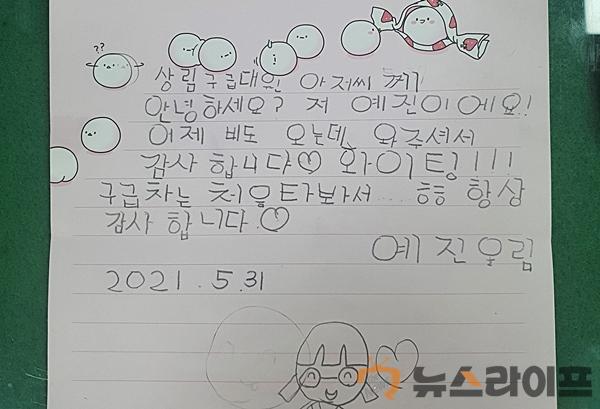 ??
상림구급대원 아저씨께
안녕하세요? 저 예진이에요!
어제 비도 오는데, 와주셔서
감사 합니다♡ 화이팅!!!
구급차는 처음타봐서.... 헝헝 항상
감사 합니다.♡
예진올림
2021.5.31
뉴스라이프